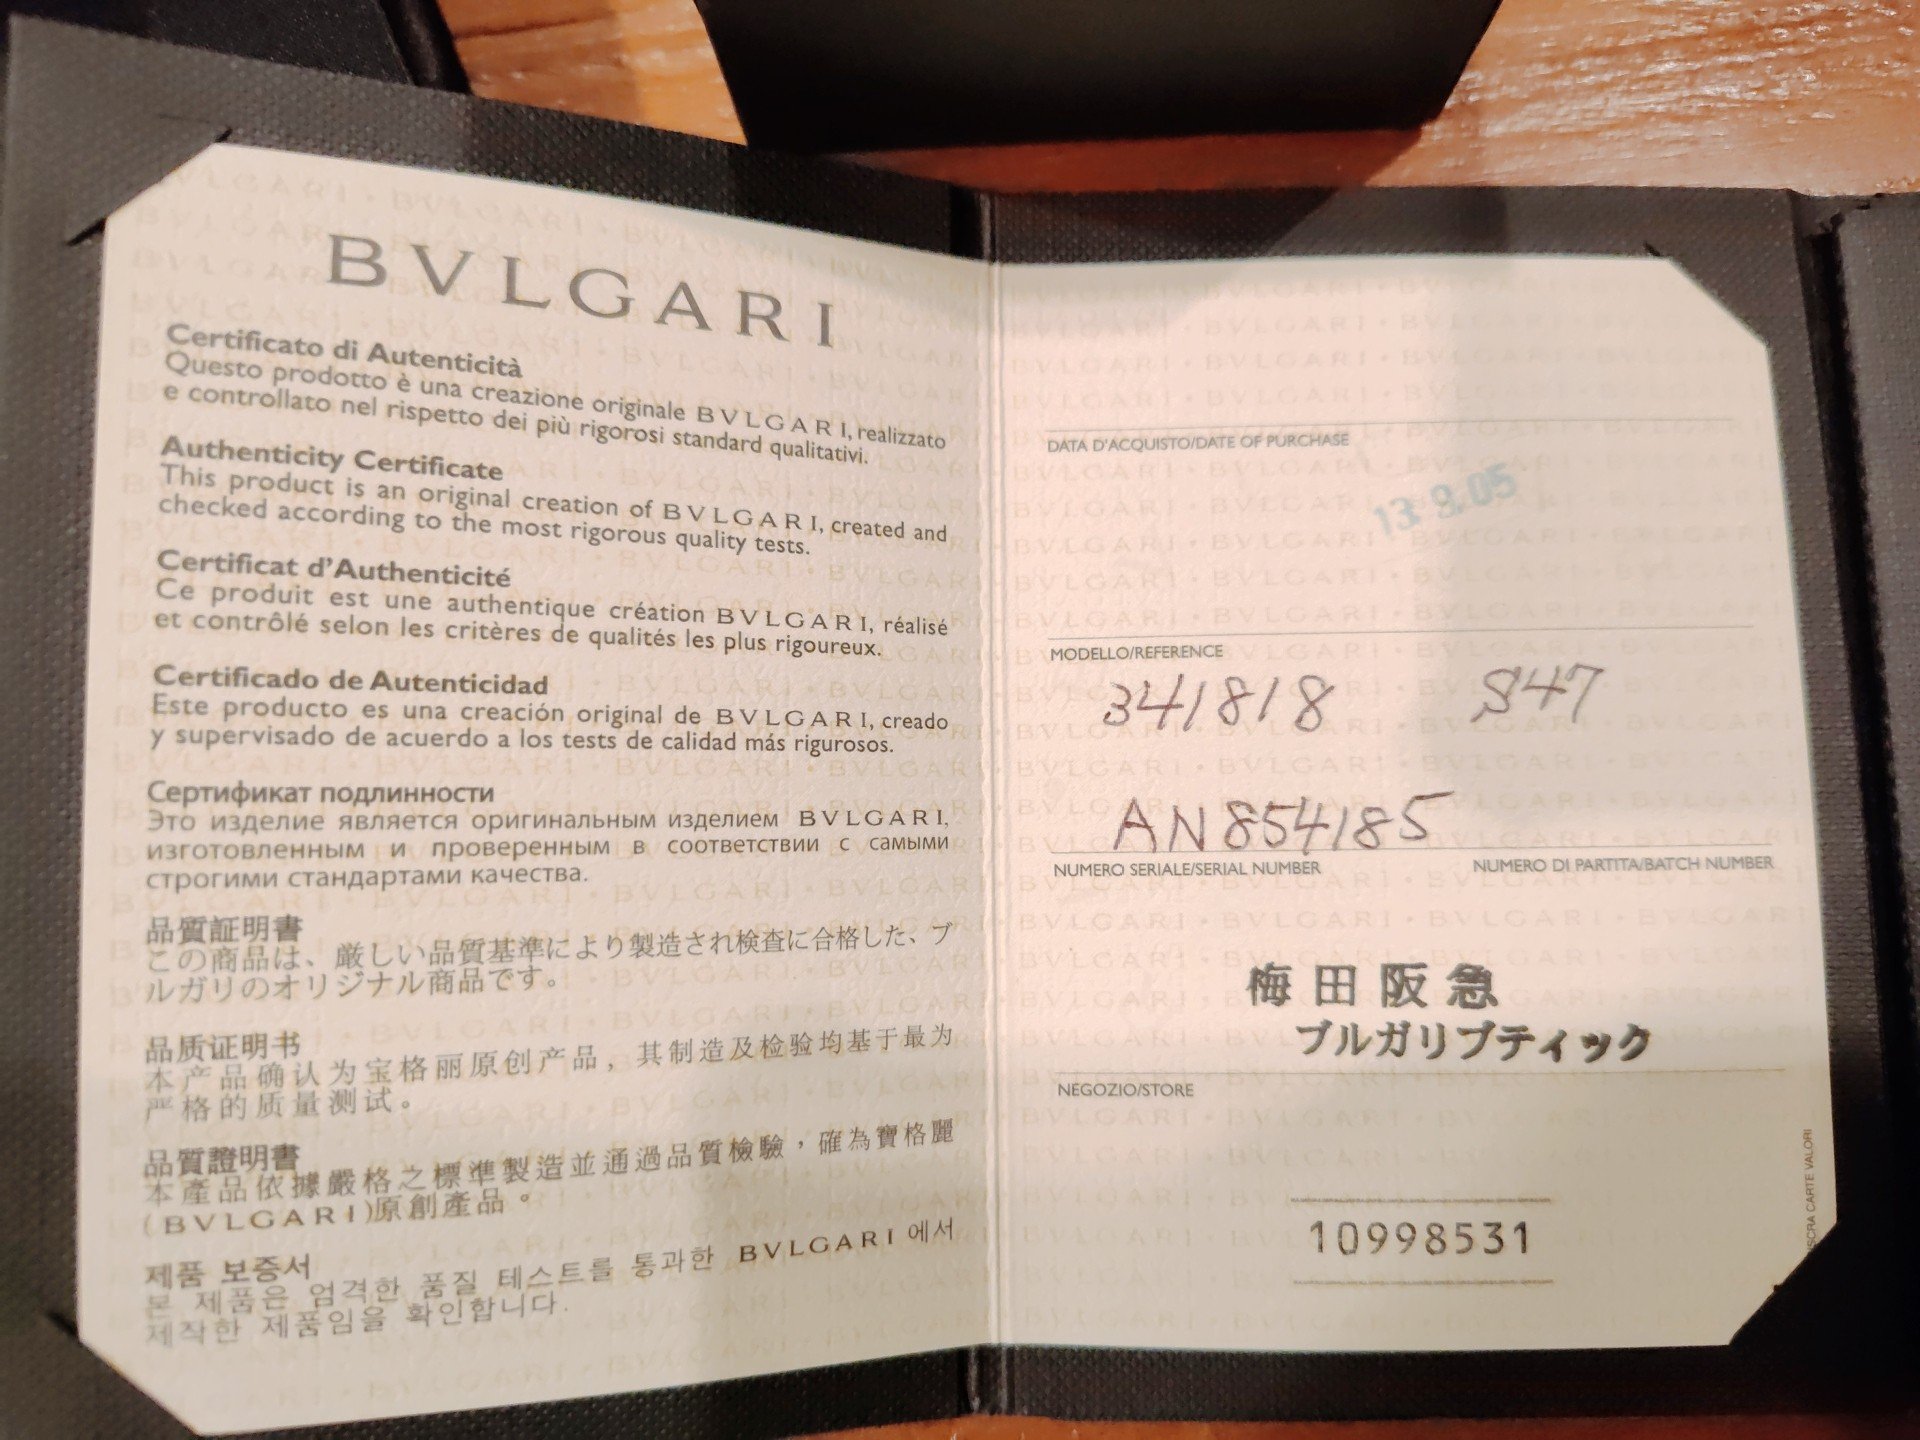 BVLGARI
Certificato di Autenticità
Questo prodotto è una creazione originale BVLGARI, realizzato
e controllato nel rispetto dei più rigorosi standard qualitativi.
Authenticity Certificate
This product is an original creation of BVLGARI, created and
checked according to the most rigorous quality tests.
Certificat d'Authenticité
Ce produit est une authentique création BVLGARI, réalisé
et contrôlé selon les critères de qualités les plus rigoureux.
Certificado de Autenticidad
Este producto es una creación original de BVLGARI, creado
y supervisado de acuerdo a los tests de calidad más rigurosos.
Сертификат подлинности
Это изделие является оригинальным изделием BVLGARI,
изготовленным и проверенным в соответствии с самыми
строгими стандартами качества.
品質証明書
この商品は、厳しい品質基準により製造され検査に合格した、ブ
ルガリのオリジナル商品です。
品质证明书
本产品确认为宝格丽原创产品，其制造及检验均基于最为
严格的质量测试。
品質證明書
本產品依據嚴格之標準製造並通過品質檢驗，確為寶格麗
(BVLGARI)原創產品。
제품 보증서
본 제품은 엄격한 품질 테스트를 통과한 BVLGARI 에서
제작한 제품임을 확인합니다.
DATA D'ACQUISTO/DATE OF PURCHASE
13.9.05
MODELLO/REFERENCE
341818 S47
AN854185
NUMERO SERIALE/SERIAL NUMBER NUMERO DI PARTITA/BATCH NUMBER
梅田阪急
ブルガリブティック
NEGOZIO/STORE
10998531
CARTE VALORI